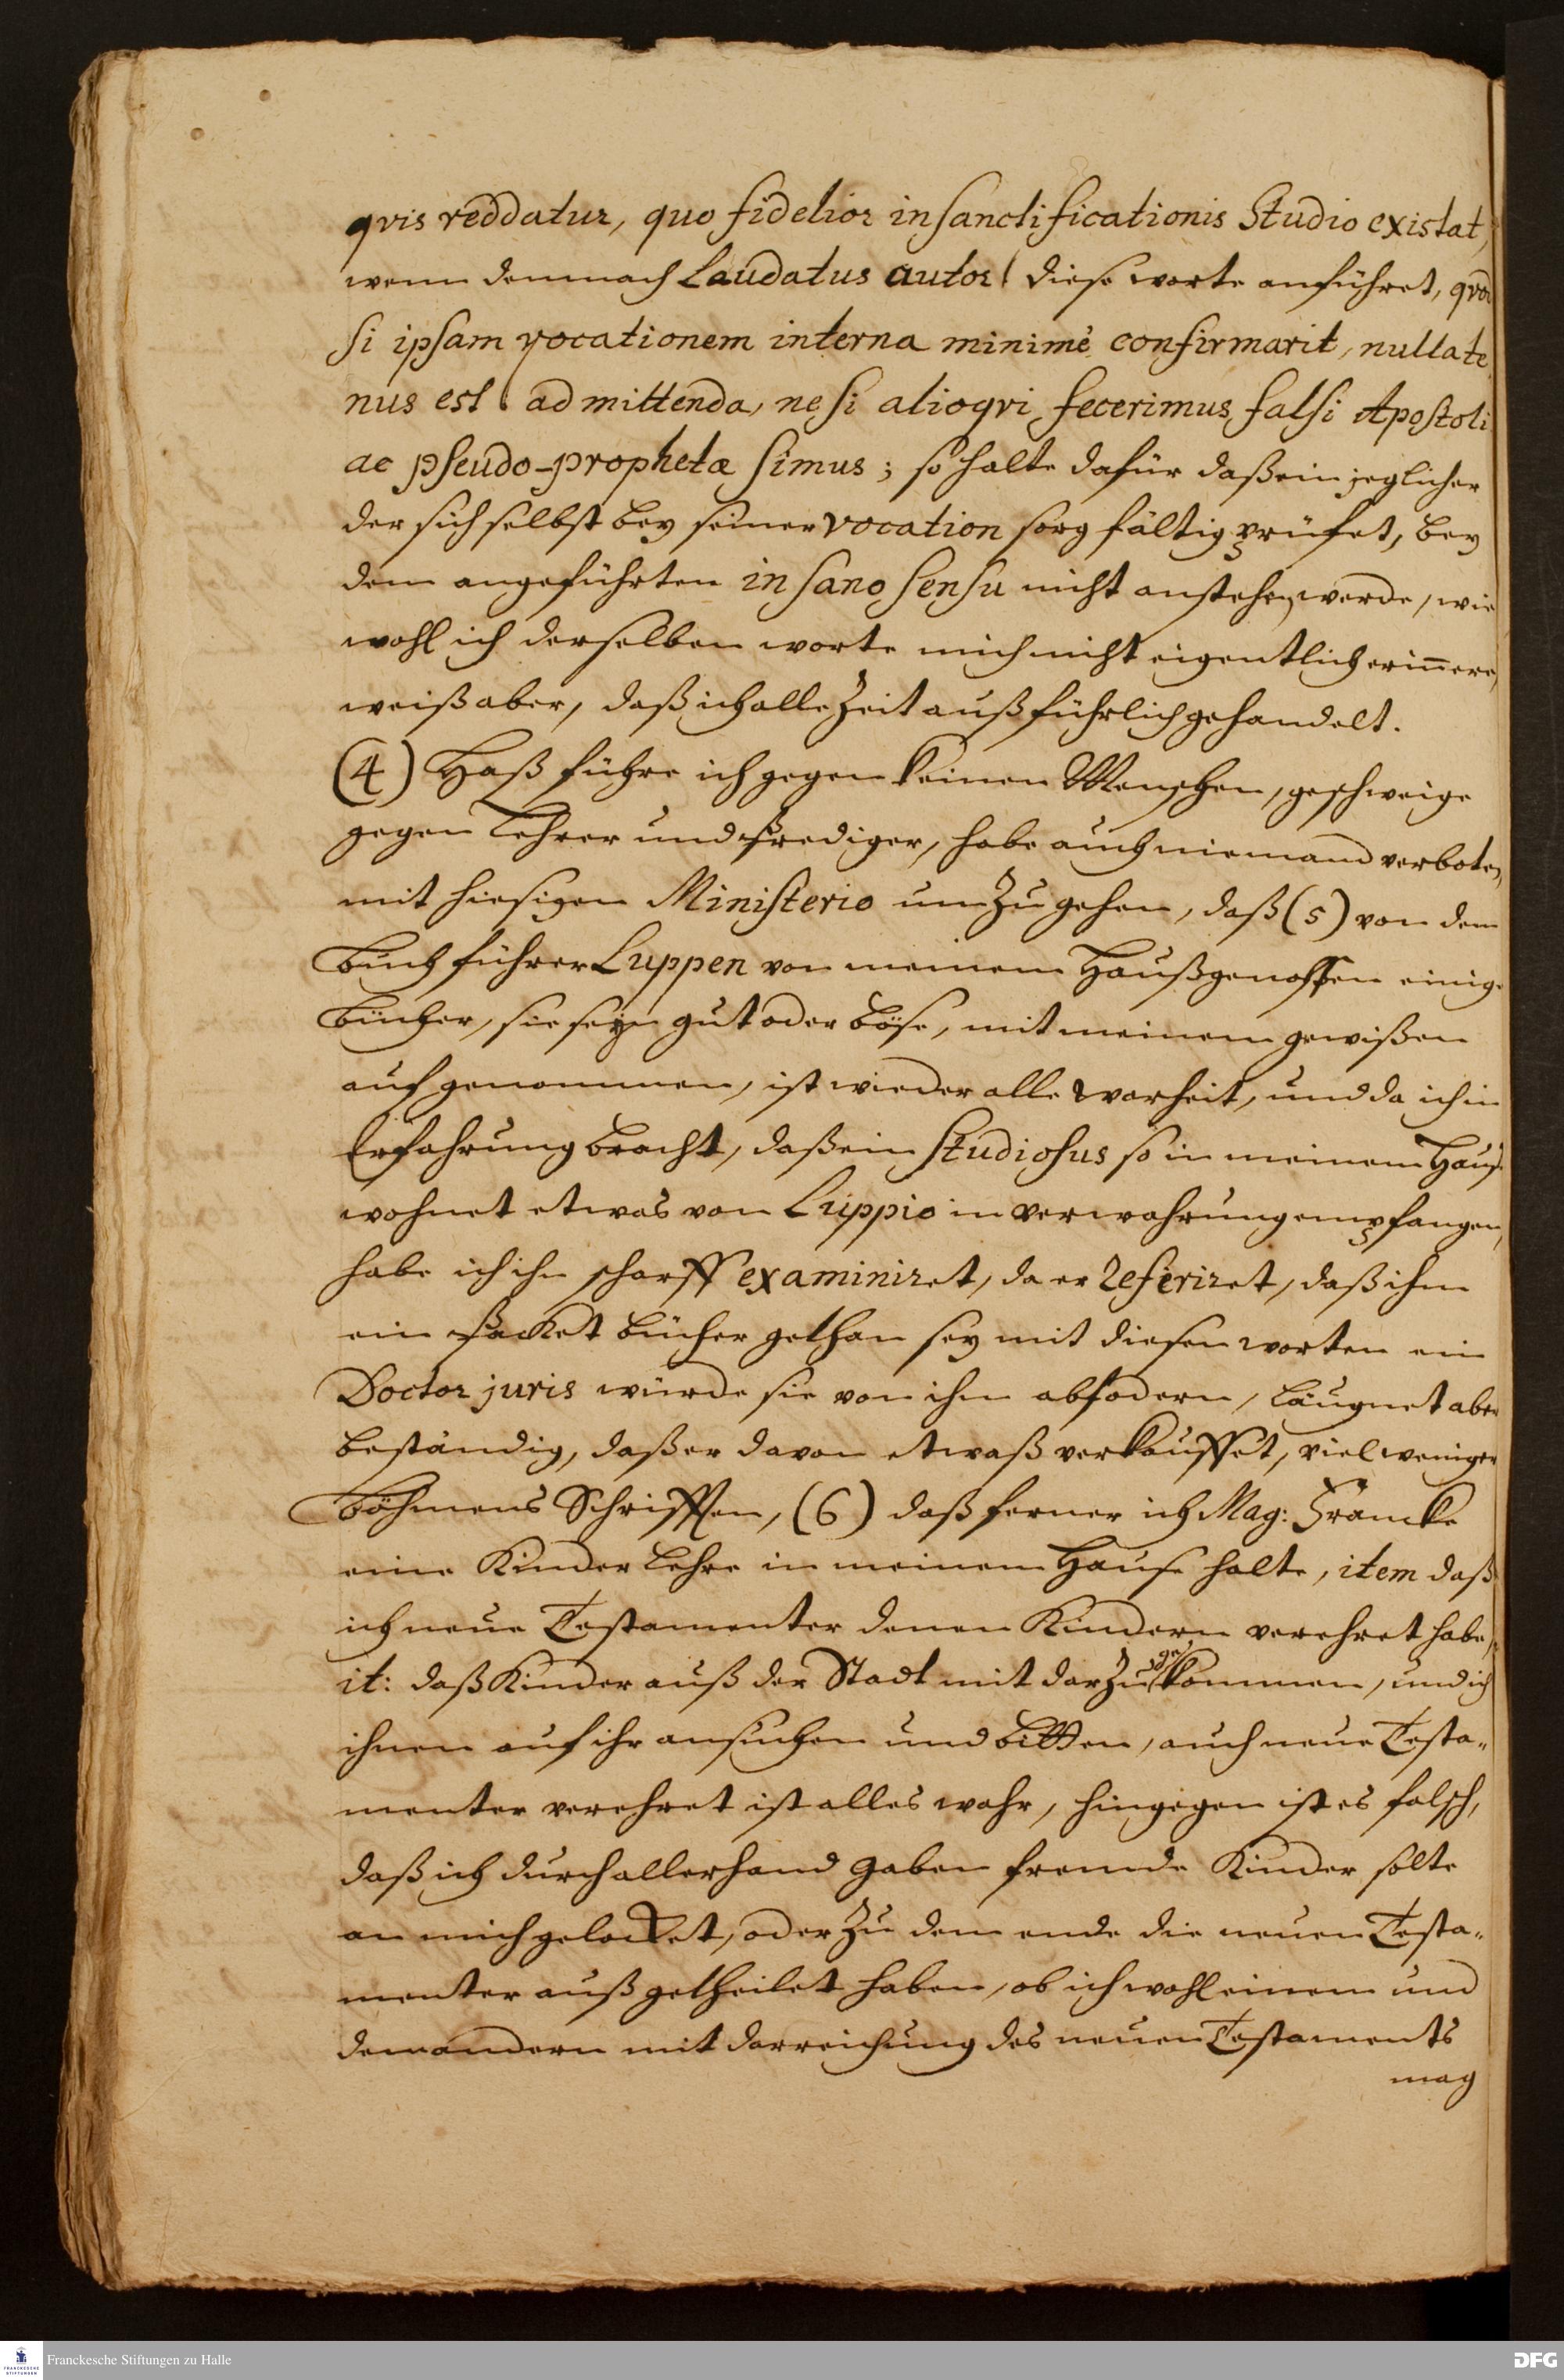 qvis reddatur, quo fidelior in sanctificationis Studio existat,
wenn demnach Laudatus autor diese worte anführet, qvod
si ipsam vocationem interna minimè confirmarit, nullate
nus est admittenda, ne si aliogvi fecerimus falsi Apostoli
ac pseudo-prophetæ simus; so halte dafür daß ein jeglicher
der sich selbst bey seiner vocation sorgfältig prüfet, bey
dem angeführten in sano sensu nicht anstehen werde, wie
wohl ich derselben worte mich nicht eigentlich erinnere,
weiß aber, daß ich alle Zeit außführlich gehandelt.
(4) Haß führe ich gegen keinen Menschen, geschweige
gegen Lehrer und Prediger, habe auch niemand verboten,
mit hiesigen Ministerio umzugehen, daß (5) von dem
Buchführer Luppen von meinem Haußgenossen einige
Bücher, sie seyn gut oder böse, mit meinem gewißen
auf genommen, ist wieder alle warheit, und da ich in
Erfahrung bracht, daß ein Studiosus so in meinem Hause
wohnet etwas von Luppio in verwahrung empfangen,
habe ich ihn scharff examiniret, da er referiret, daß ihm
ein Packet bücher gethan sey mit diesen worten ein
Doctor juris würde sie von ihm abfodern, läugnet aber
beständig, daß er davon etwaß verkauffet, viel weniger
Böhmens Schrifften, (6) daß ferner ich Mag: Francke
eine Kinder Lehre in meinem Hause halte, item daß
ich neue Testamenter denen Kindern verehret habe,
it: daß Kinder auß der Stadt mit darzu gekommen, und ich
ihnen auf ihr ansuchen und bitten, auch neue Testa-
menter verehret ist alles wahr, hingegen ist es falsch,
daß ich durch allerhand gaben fremde Kinder solte
an mich gelocket, oder zu dem ende die neuen Testa-
menter außgetheilet haben, ob ich wohl einem und
dem andern mit darreichung des neuen Testaments
mag
Franckesche Stiftungen zu Halle
DFG